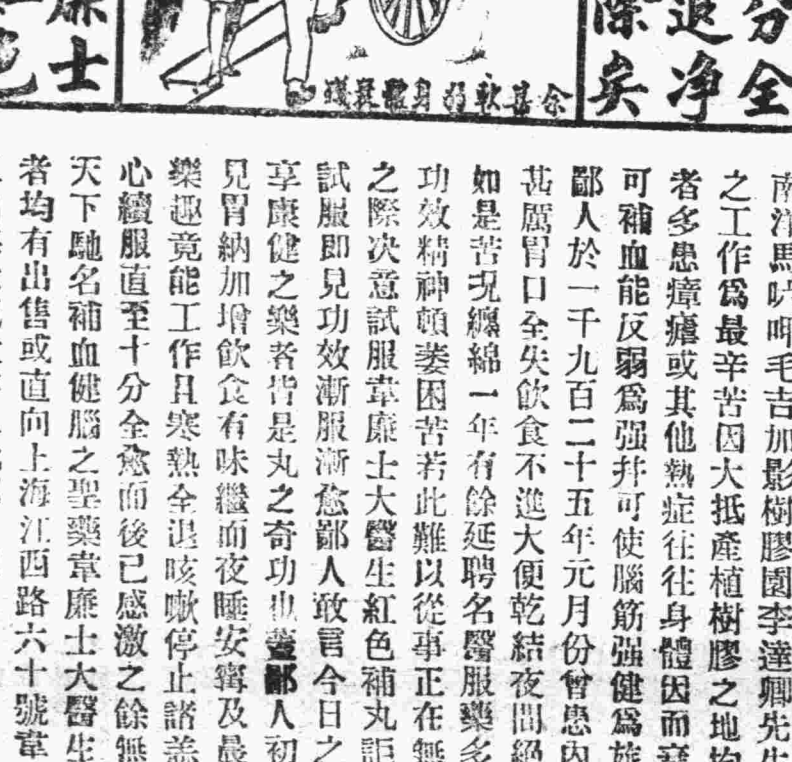 分全
退净
除矣
余甚軟弱身體衰殘
廉士
色
南洋馬吠呷毛吉加影樹膠園李達卿先生
之工作爲最辛苦因大抵產植樹膠之地均
者多患瘴瘧或其他熱症往往身體因而衰
可補血能反弱爲强幷可使腦筋强健爲旅
鄙人於一千九百二十五年元月份曾患內
甚厲胃口全失飲食不進大便乾結夜間絕
如是苦况纏綿一年有餘延聘名醫服藥多
功效精神頓萎困苦若此難以從事正在無
之際决意試服韋廉士大醫生紅色補丸詎
試服即見功效漸服漸愈鄙人敢言今日之
享康健之樂者皆是丸之奇功也蓋鄙人初
見胃納加增飲食有味繼而夜睡安甯及晨
樂趣竟能工作且寒熱全退咳嗽停止諸恙
心續服直至十分全愈而後已感激之餘無
天下馳名補血健腦之聖藥韋廉士大醫生
者均有出售或直向上海江西路六十號韋